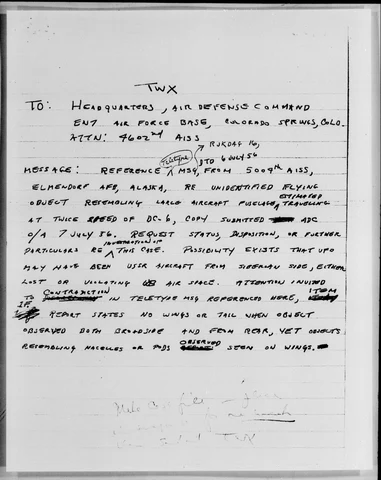 TWX
TO: HEADQUARTERS, AIR DEFENSE COMMAND
ENT AIR FORCE BASE, COLORADO SPRINGS, COLO.
ATTN: 4602nd AISS
RJKDAG 16,
DTD 6 JULY 56
MESSAGE: REFERENCE TELETYPE MSG, FROM 5004th AISS,
ELMENDORF AFB, ALASKA, RE UNIDENTIFIED FLYING
OBJECT RESEMBLING LARGE AIRCRAFT FUSELAGE, ESTIMATED TRAVELING
AT TWICE SPEED OF DC-6, COPY SUBMITTED ADC
O/A 7 JULY 56. REQUEST STATUS, DISPOSITION, OR FURTHER
PARTICULARS RE INVESTIGATION OF THIS CASE. POSSIBILITY EXISTS THAT UFO
MAY HAVE BEEN USSR AIRCRAFT FROM SIBERIAN SIDE, EITHER
LOST OR VIOLATING US AIR SPACE. ATTENTION INVITED
TO CONTRADICTION IN TELETYPE MSG REFERENCED HERE, ITEM
2F REPORT STATES NO WINGS OR TAIL WHEN OBJECT
OBSERVED BOTH BROADSIDE AND FROM REAR, YET OBJECTS
RESEMBLING NACELLES OR PODS OBSERVED SEEN ON WINGS.
TWX